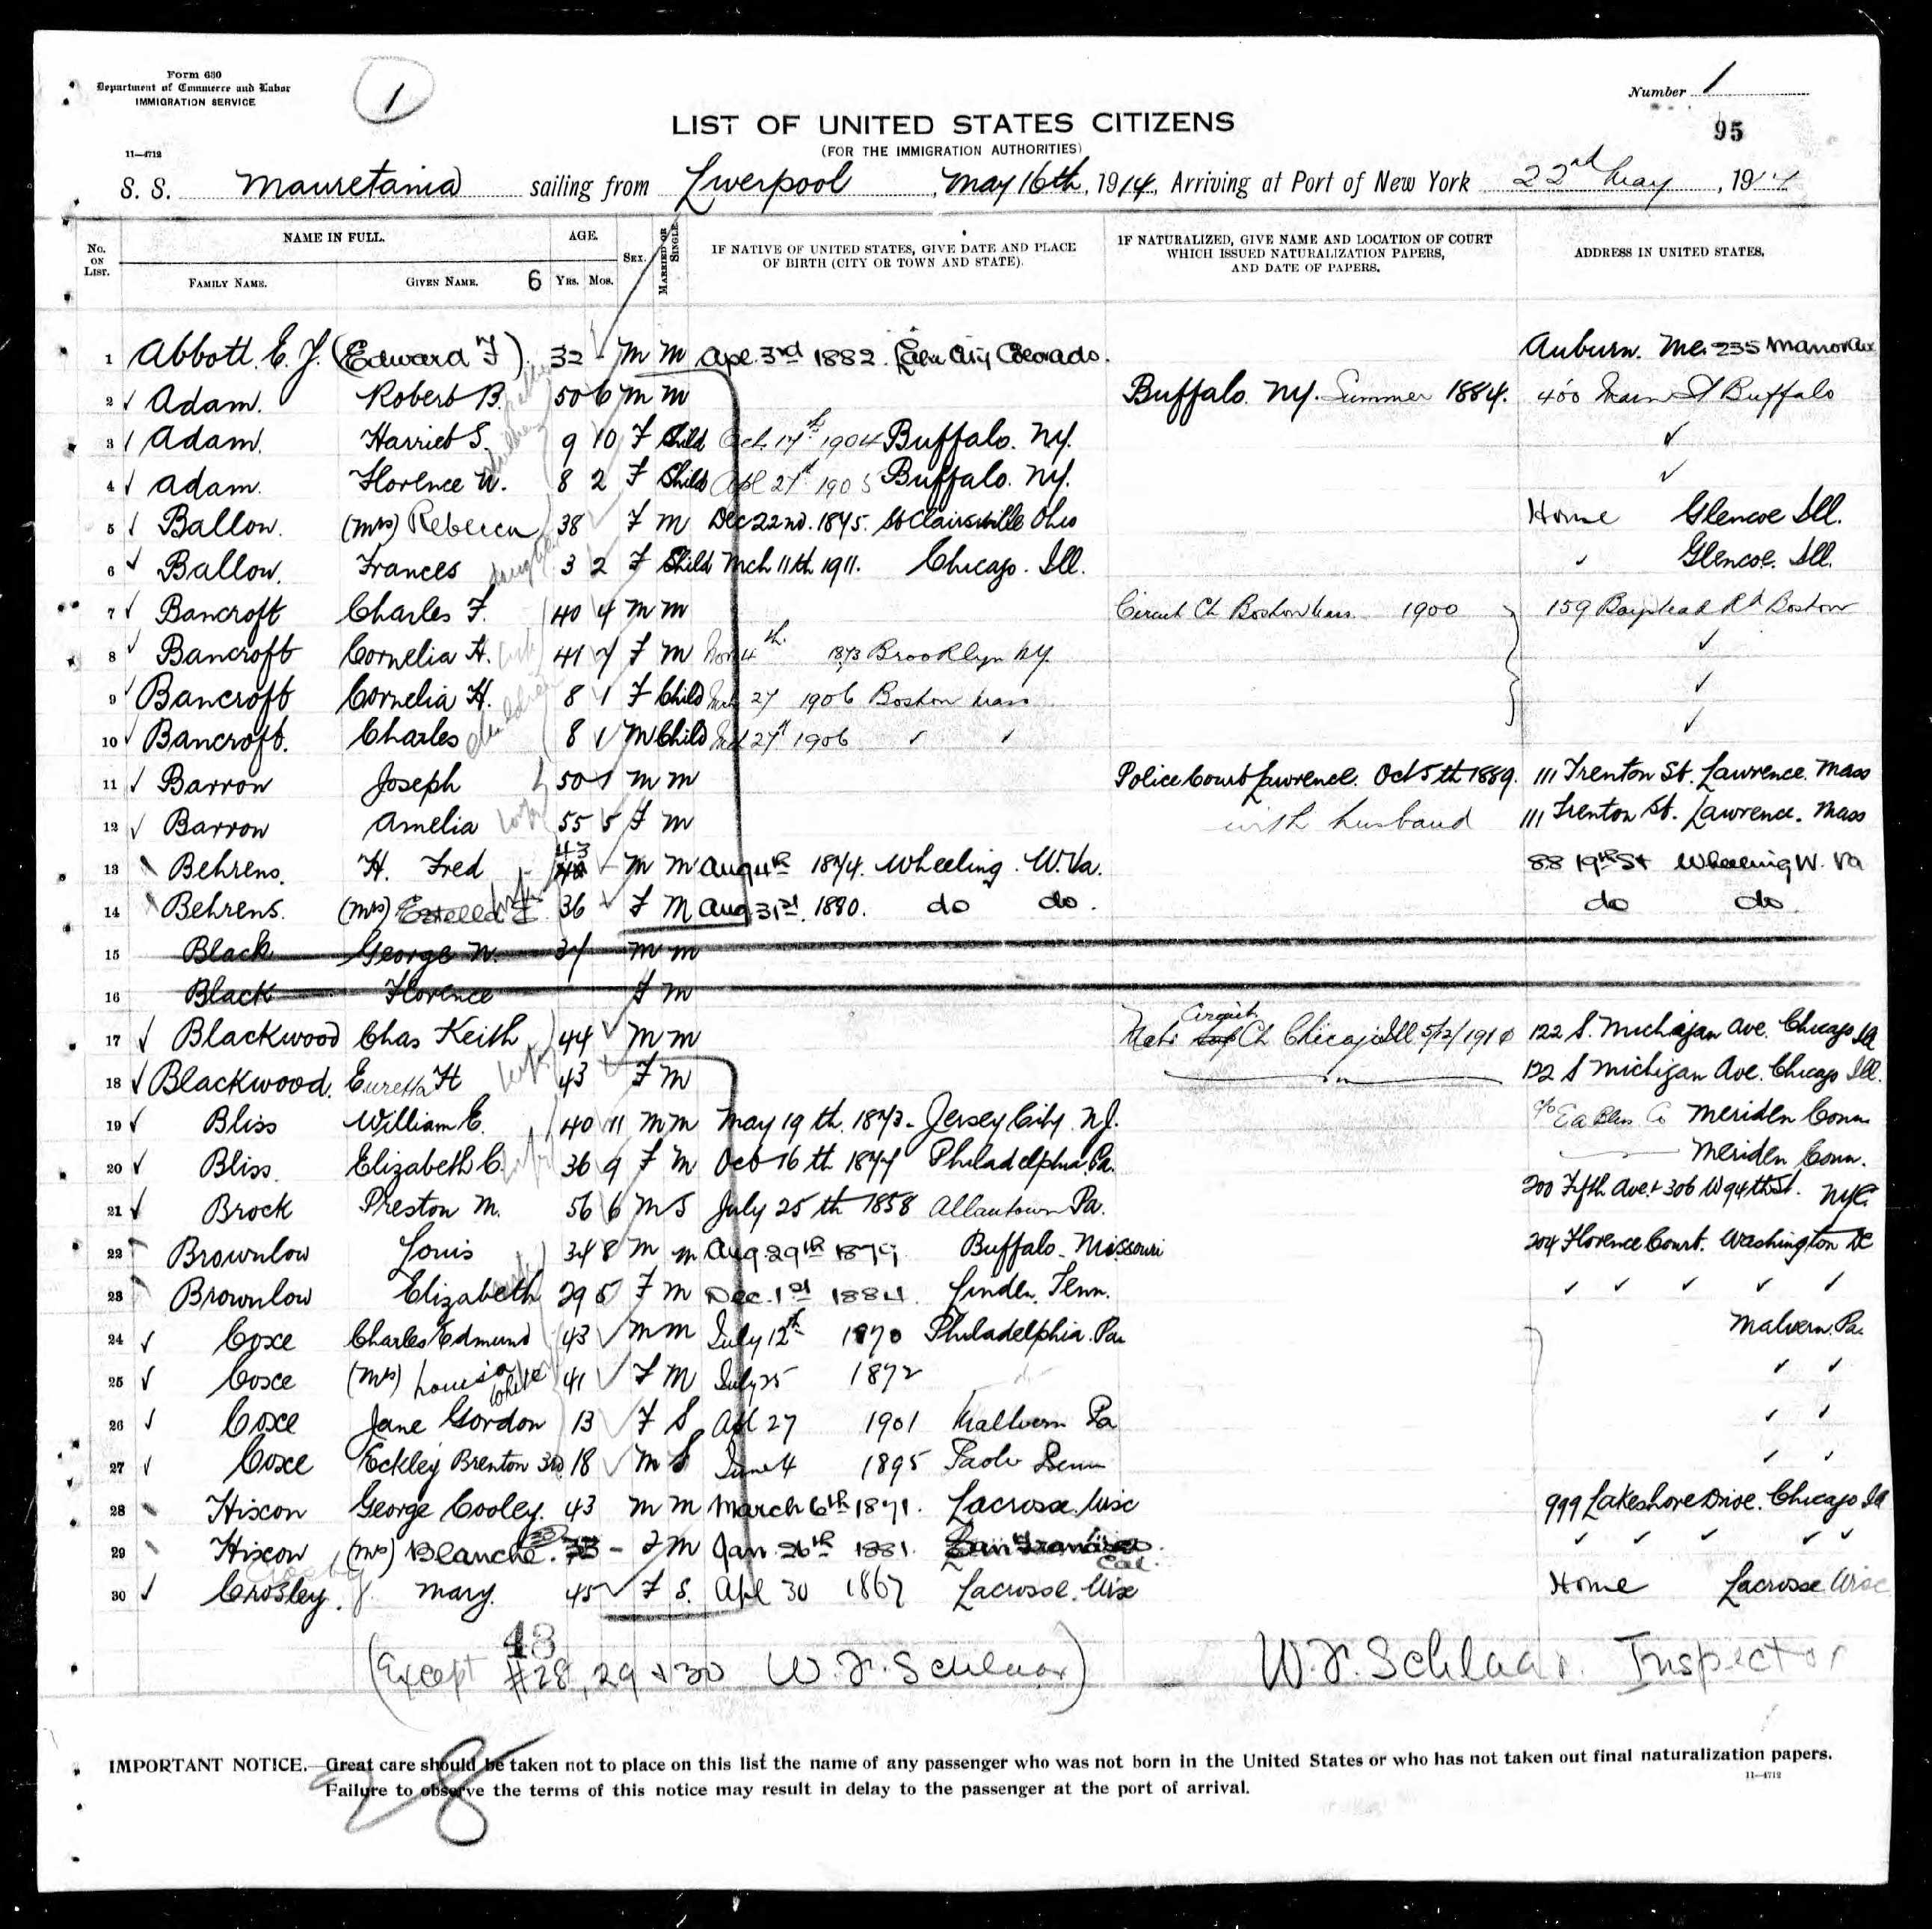 Form 630
Department of Commerce and Labor
IMMIGRATION SERVICE
1
Number 1
95
LIST OF UNITED STATES CITIZENS
(FOR THE IMMIGRATION AUTHORITIES)
11—4712
S. S. Mauretania sailing from Liverpool, May 16th, 1914, Arriving at Port of New York 22nd May, 1914
No. ON LIST.
NAME IN FULL.
FAMILY NAME.
GIVEN NAME.
6
AGE.
YRS. MOS.
SEX.
MARRIED OR SINGLE.
IF NATIVE OF UNITED STATES, GIVE DATE AND PLACE OF BIRTH (CITY OR TOWN AND STATE).
IF NATURALIZED, GIVE NAME AND LOCATION OF COURT WHICH ISSUED NATURALIZATION PAPERS, AND DATE OF PAPERS.
ADDRESS IN UNITED STATES.
1 Abbott. E. J. (Edward F) 32 - M M Apl. 3rd 1882. City Colorado. Auburn. Me. 235 Manor Ave
2 ✓ Adam. Robert B. 50 6 M M Buffalo. NY. Summer 1884. 400 Main St Buffalo
3 ✓ Adam. Harriet S. 9 10 F Child Oct. 17th 1904 Buffalo. NY. ✓
4 ✓ Adam. Florence W. children 8 2 F Child Apl 27th 1905 Buffalo. NY. ✓
5 ✓ Ballow. (Mrs) Rebecca 38 F M Dec 22nd. 1875. St Clairsville Ohio Home Glencoe Ill.
6 ✓ Ballow. Frances daughter 3 2 F Child Mch 11th 1911. Chicago. Ill. ✓ Glencoe. Ill.
7 ✓ Bancroft Charles F. 40 4 M M Circuit Ct Boston Mass 1900 159 Baystead Rd Boston
8 ✓ Bancroft Cornelia H. wife 41 7 F M Nov 4th. 1873 Brooklyn NY. ✓
9 ✓ Bancroft Cornelia H. 8 1 F Child Mch 27 1906 Boston Mass ✓
10 ✓ Bancroft. Charles children 8 1 M Child Mch 27th 1906 ✓ ✓ ✓
11 ✓ Barron Joseph 50 1 M M Police Court Lawrence. Oct 5th 1889. 111 Trenton St. Lawrence. Mass
12 ✓ Barron Amelia wife 55 5 F M with husband 111 Trenton St. Lawrence. Mass
13 Behrens. H. Fred 43 - M M Aug 4th 1874. Wheeling. W. Va. 88 19th St Wheeling W. Va
14 Behrens. (Mrs) Estella E wife 36 F M Aug. 31st. 1880. do do. do do.
15 Black George N. 37 M M
16 Black Florence F M
17 ✓ Blackwood Chas Keith 44 M M Circuit Ct Chicago Ill 5/12/1910 122 S. Michigan Ave. Chicago Ill
18 ✓ Blackwood. Euretta H wife 43 F M 122 S Michigan Ave. Chicago Ill.
19 ✓ Bliss William E. 40 11 M M May 19th. 1873 - Jersey City. N.J. c/o E A Bliss Co Meriden Conn
20 ✓ Bliss. Elizabeth C. wife 36 9 F M Oct 16th 1877 Philadelphia. Pa. Meriden Conn.
21 ✓ Brock Preston M. 56 6 M S July 25th 1858 Allantown Pa. 200 Fifth Ave. + 306 W 94th St. NYC.
22 Brownlow Louis 34 8 M M Aug. 29th 1879 Buffalo. Missouri 204 Florence Court. Washington DC
23 Brownlow Elizabeth wife 29 5 F M Dec. 1st 1884. Linden. Tenn. ✓ ✓ ✓ ✓ ✓
24 ✓ Coxe Charles Edmund 43 M M July 12th 1870 Philadelphia. Pa Malvern. Pa.
25 ✓ Coxe (Mrs) Louisa White 41 F M July 25 1872 ✓ ✓
26 ✓ Coxe Jane Gordon 13 F S Apl 27 1901 Malvern Pa ✓ ✓
27 ✓ Coxe Eckley Brenton 3rd 18 M S June 4 1895 Paoli Penn ✓ ✓
28 Hixon George Cooley. 43 M M March 6th 1871. Lacrosse. Wisc 999 Lakeshore Drive. Chicago Ill
29 Hixon (Mrs) Blanche. 33 - F M Jan. 26th 1881. San Francisco. Cal. ✓ ✓ ✓ ✓ ✓
30 ✓ Crosley. J. Mary. 45 F S. Apl 30 1867 Lacrosse. Wix Home Lacrosse Wisc
43
(Except #28, 29 & 30 W. F. Schlaar) W. F. Schlaar. Inspector
28
IMPORTANT NOTICE.—Great care should be taken not to place on this list the name of any passenger who was not born in the United States or who has not taken out final naturalization papers.
Failure to observe the terms of this notice may result in delay to the passenger at the port of arrival.
11—4712